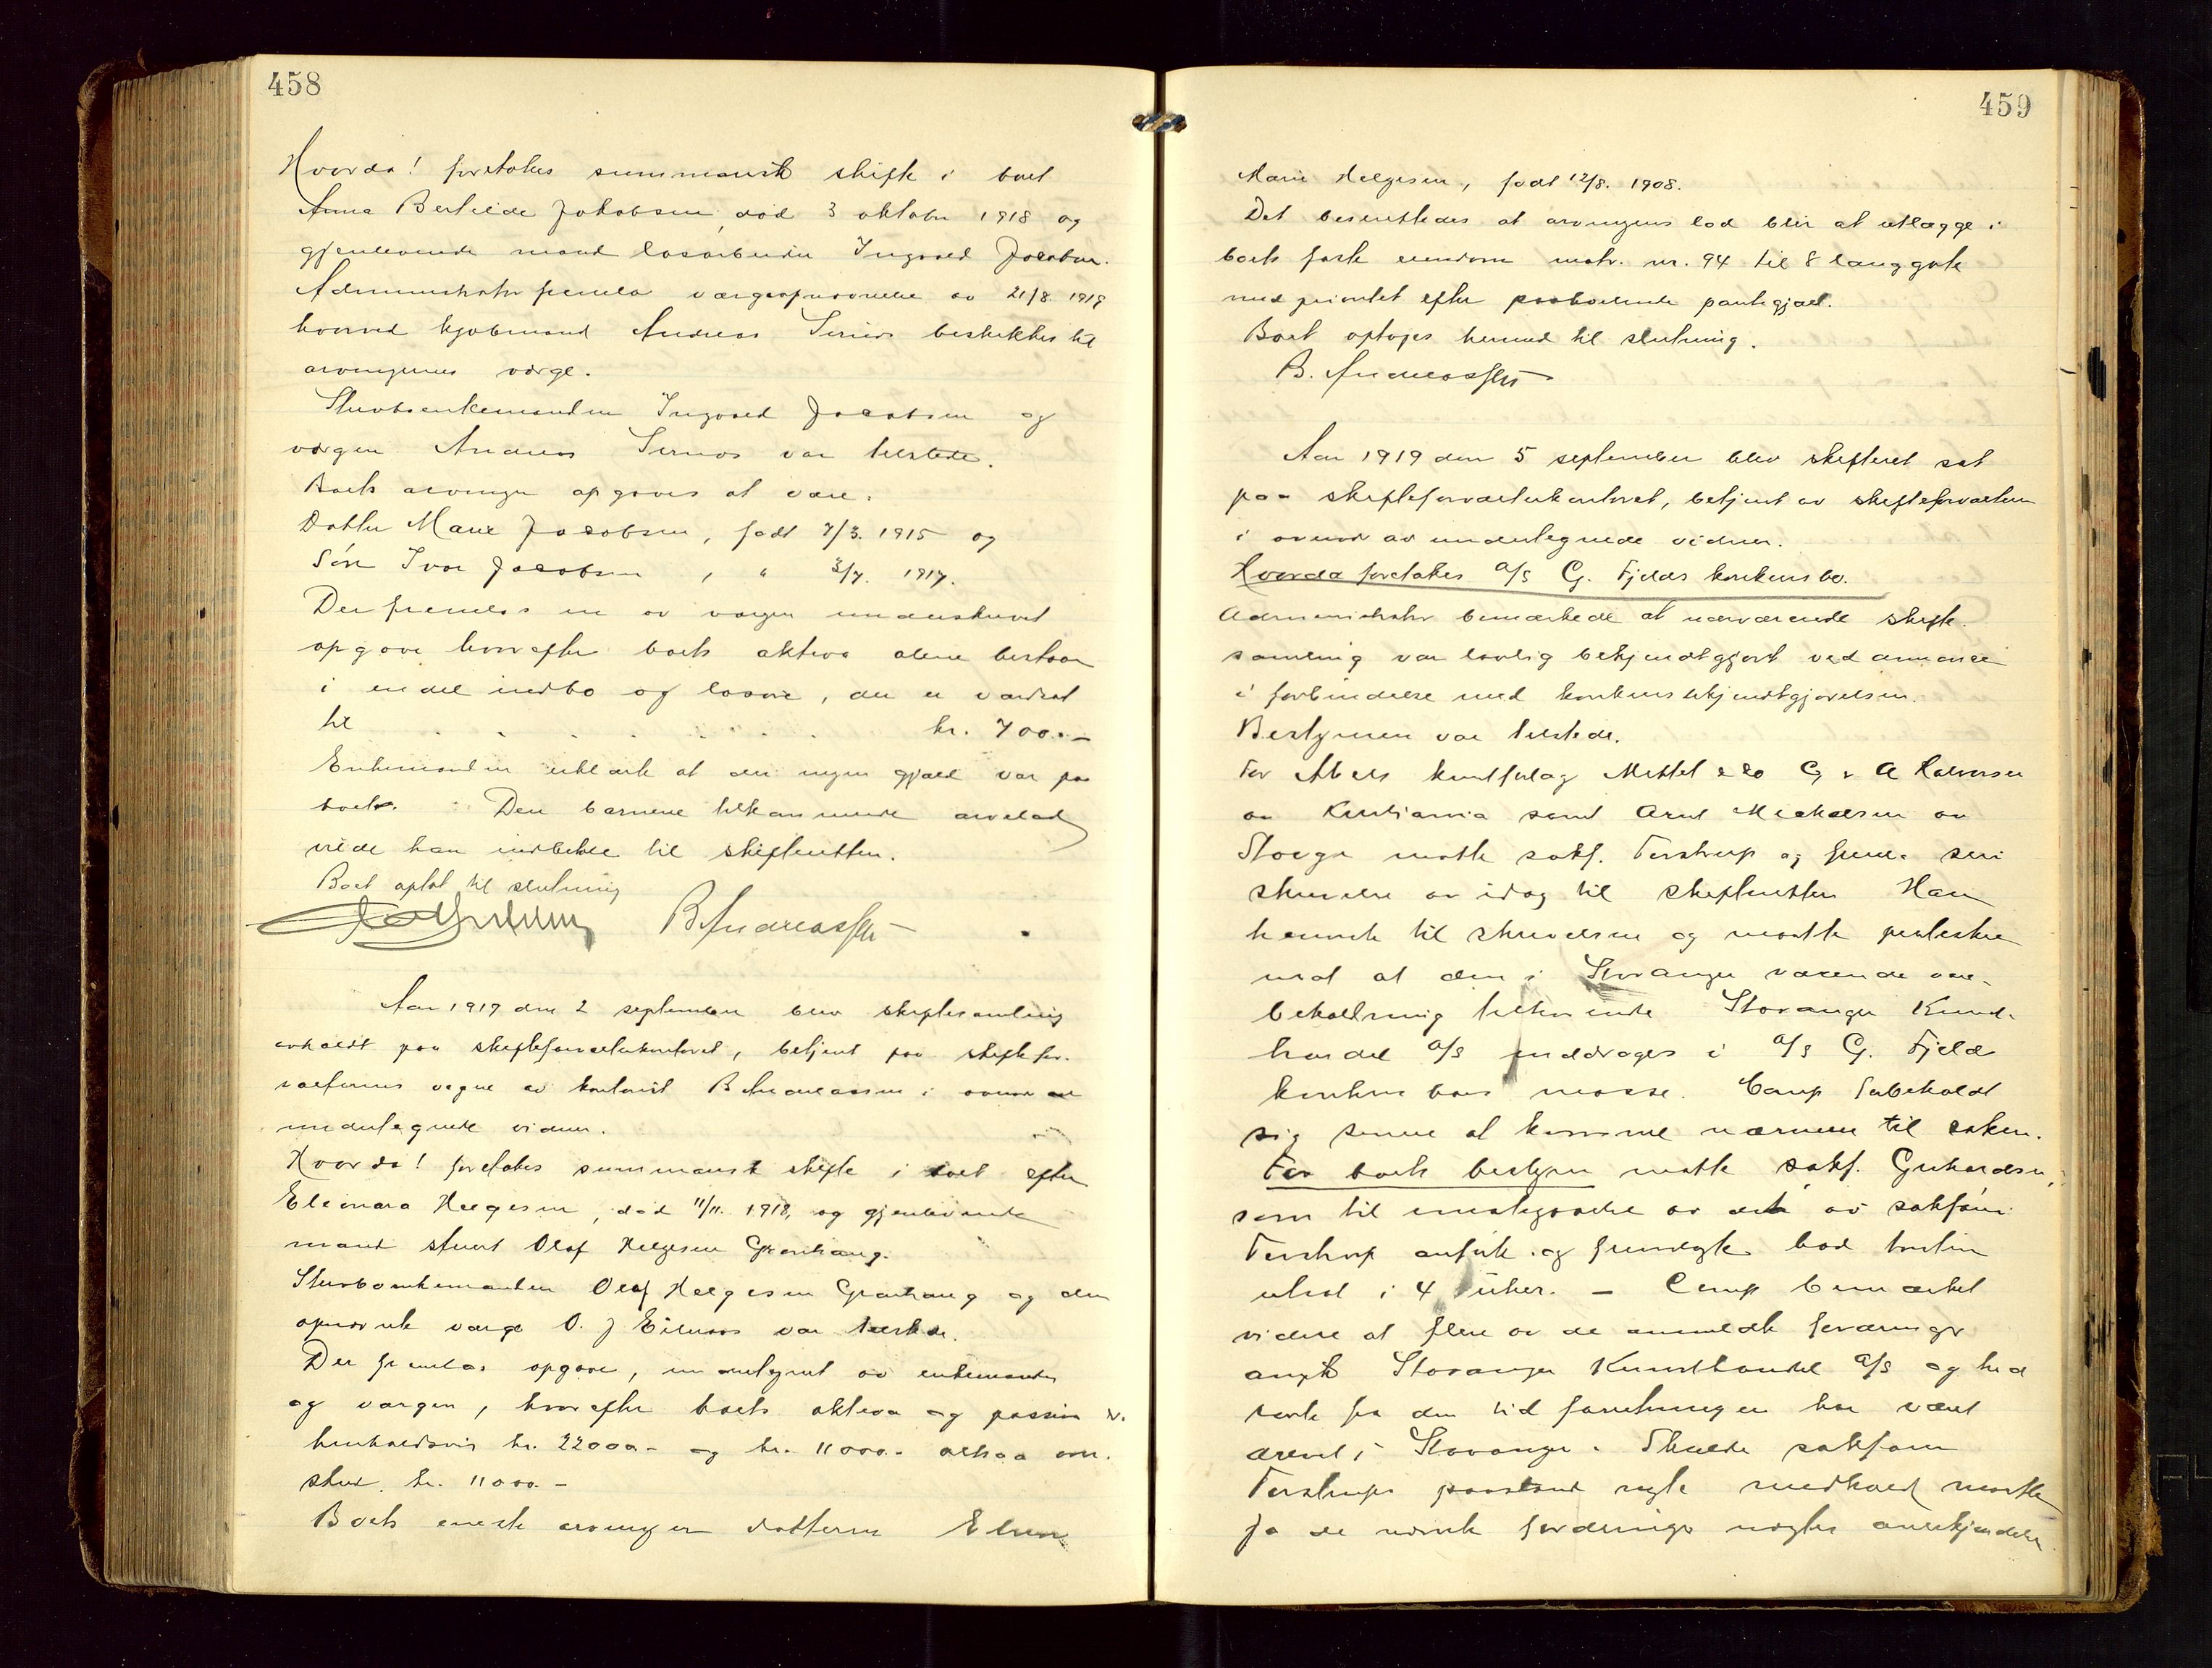 458
Hvorda! foretokes summarisk skifte i boet
Anna Bertilde Jakobsen, død 3 oktober 1918 og
gjenlevende mand løsarbeider Ingvald Jacobsen.
Administrator fremla værgeopnævnelse av 21/8. 1919
hvorved kjøbmand Andreas beskikkes til
arvingenes værge.
Skiftsenkemanden Ingvald Jacobsen og
værgen Andreas var tilstede.
Boets arvinger opgaves at være:
Datter Marie Jacobsen, født 7/3. 1915 og
Søn Ivar Jacobsen, " 3/7. 1917.
Der fremlas en av værgen underskrevet
opgave hvorefter boets aktiva alene bestaar
i endel indbo og løsøre, der er værdsat
til . . . . . . . kr. 700.-
Enkemanden erklærte at der ingen gjæld var paa
boet. Den barnene tilkommende arvelod
vilde han indbetale til skifteretten.
Boet optat til slutning
B. Andreassen
Aar 1919 den 2 september blev skiftesamling
avholdt paa skifteforvalterkontoret, betjent paa skiftefor-
valterens vegne av kontorist B Andreassen i overvær av
undertegnede vidner.
Hvorda! foretokes summarisk skifte i boet efter
Eleonora Helgesen, død 11/11. 1918, og gjenlevende
mand stuert Olaf Helgesen Granhaug.
Skiftsenkemanden Olaf Helgesen Granhaug og den
opnævnte værge O. J var tilstede.
Der fremlas opgave, undertegnet av enkemanden
og værgen, hvorefter boets aktiva og passiva er
henholdsvis kr. 22000.- og kr. 11000.- altsaa over-
skud kr. 11000.-
Boets eneste arving er datteren Ellen
459
Marie Helgesen, født 12/8. 1908.
Det besluttedes at arvingens lod blir at utlægge i
boets faste eiendom matr. nr. 94 til 8 langgate
med prioritet efter paahvilende pantegjæld.
Boet optoges hermed til slutning.
B. Andreassen
Aar 1919 den 5 september blev skifteret sat
paa skifteforvalterkontoret, betjent av skifteforvalteren
i overvær av undertegnede vidner.
Hvorda foretokes A/S G. Fjelds konkursbo.
Administrator bemærkede at nærværende skifte-
samling var lovlig bekjendtgjort ved annonce
i forbindelse med konkursbekjendtgjørelsen.
Bestyreren var tilstede.
For Abels kunstforlag Mittet & Co G & A Halvorsen
av Kristiania samt Arnt Mickelsen av
møtte sakf. Terstrup og fremla sin
skrivelse av idag til skifteretten Han
henviste til skrivelsen og maatte protestere
mot at den i Stavanger værende vare-
beholdning tilhørende Stavanger Kunst-
handel A/S inddrages i A/S G. Fjelds
konkursboes masse. Comp forbeholdt
sig senere at komme nærmere til saken.
For boets bestyrer møtte sakf. Gerhardsen,
som til imøtegaaelse av det av sakfører
Terstrup anførte og fremlagte bad
utsat i 4 uker. - Comp bemærket
videre at flere av de anmeldte fordringer
angik Stavanger Kunsthandel A/S og
fra den tid forretningen har været
drevet i Stavanger. Skulde sakfører
Terstrups paastand nyte medhold maatte
jo de nævnte fordringer nægtes anerkjendelse